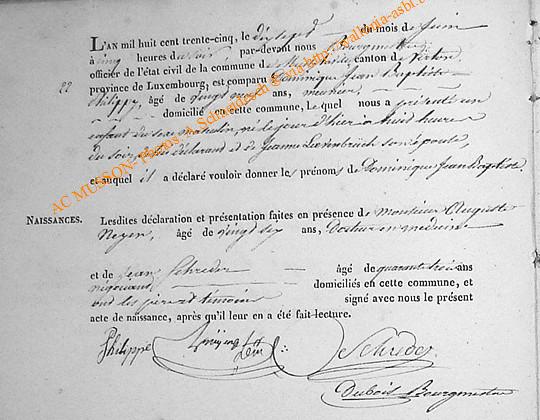 L'AN mil huit cent trente-cinq, le dix sept du mois de Juin
à cinq heures du soir par-devant nous Bourgmestre
officier de l'état civil de la commune de canton de Virton
22 province de Luxembourg, est comparu Dominique Jean Baptiste
Philippe, âgé de vingt ans, meunier,
domicilié en cette commune, Lequel nous a présenté un
enfant du sexe masculin, né le jour d'hier à huit heures
du soir, de lui déclarant et de Jeanne son épouse,
et auquel il a déclaré vouloir donner les prénoms de Dominique Jean Baptiste.
NAISSANCES. Lesdites déclaration et présentation faites en présence de Monsieur Auguste
Neyen, âgé de vingt six ans, Docteur en médecine
et de Jean Schreder âgé de quarante trois ans
négociant domiciliés en cette commune, et
ont les père et témoins signé avec nous le présent
acte de naissance, après qu'il leur en a été fait lecture.
Philippe Schreder
Dubois Bourgmestre
AC MUSSON- Photos A. Schmidesch @ via http://walloria-asbl.